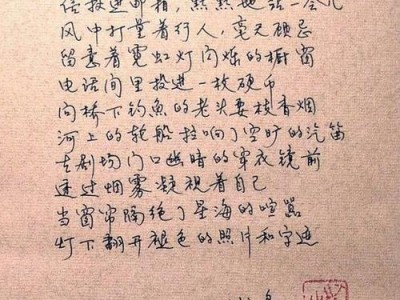 信投进邮箱，默默地站一会儿
风中打量着行人，毫无顾忌
留意着霓虹灯闪烁的橱窗
电话间里投进一枚硬币
问桥下钓魚的老头要枝香烟
河上的轮船拉响了空旷的汽笛
在剧场门口幽暗的穿衣镜前
透过烟雾凝视着自己
当窗帘隔绝了星海的喧嚣
灯下翻开褪色的照片和字迹